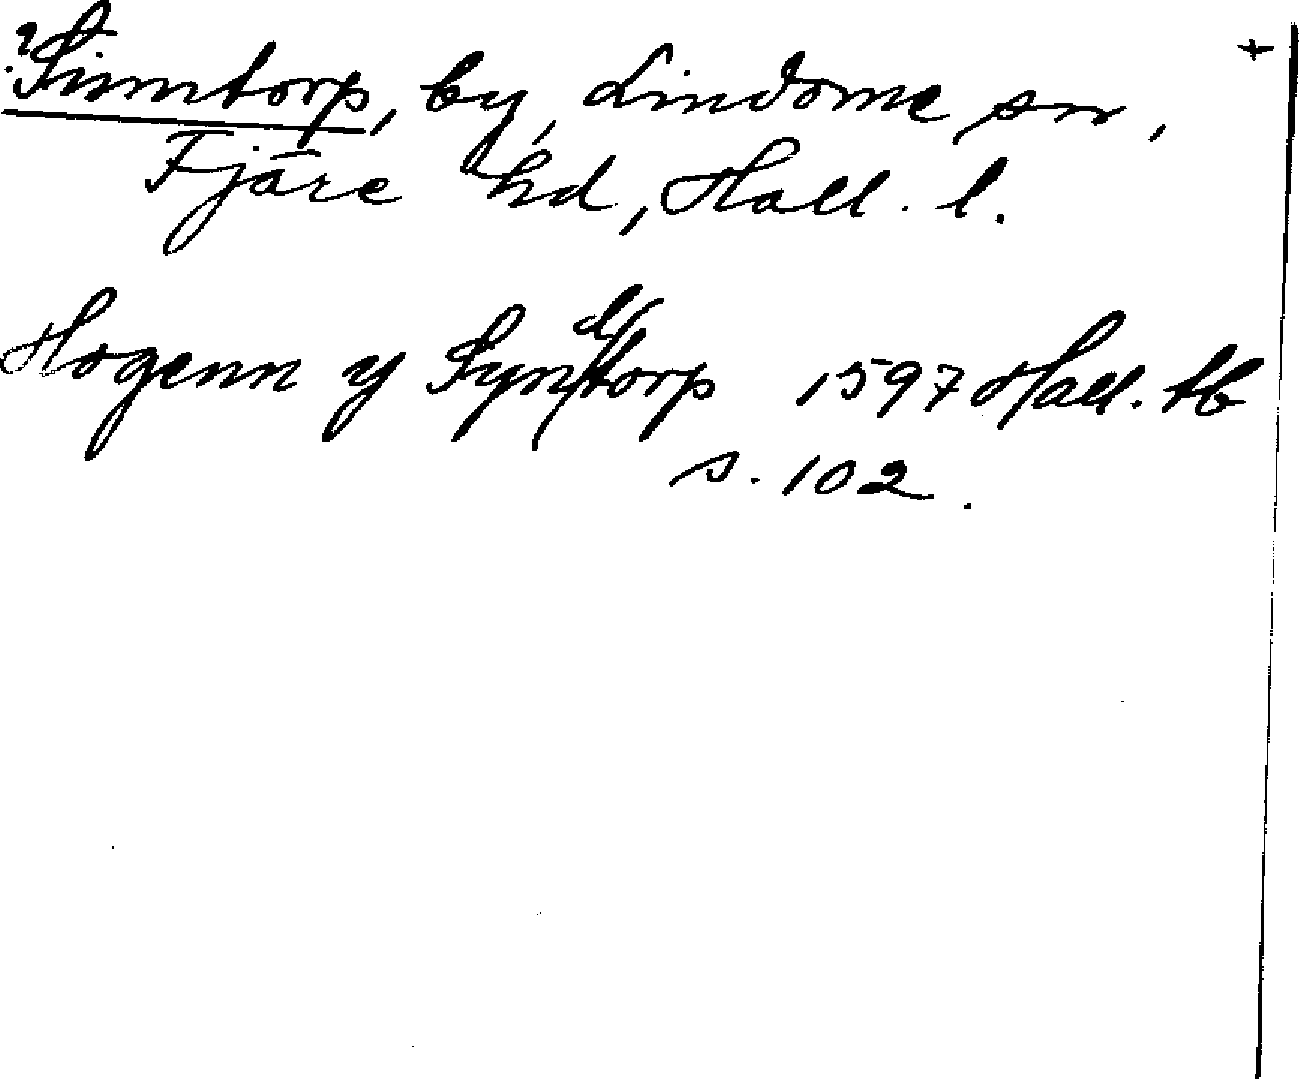 ? Sinntorp, by, Lindome sn, +
Fjäre hd, Hall. l.
Hogenn y Syndtorp 1597 Hall. tb
s. 102.